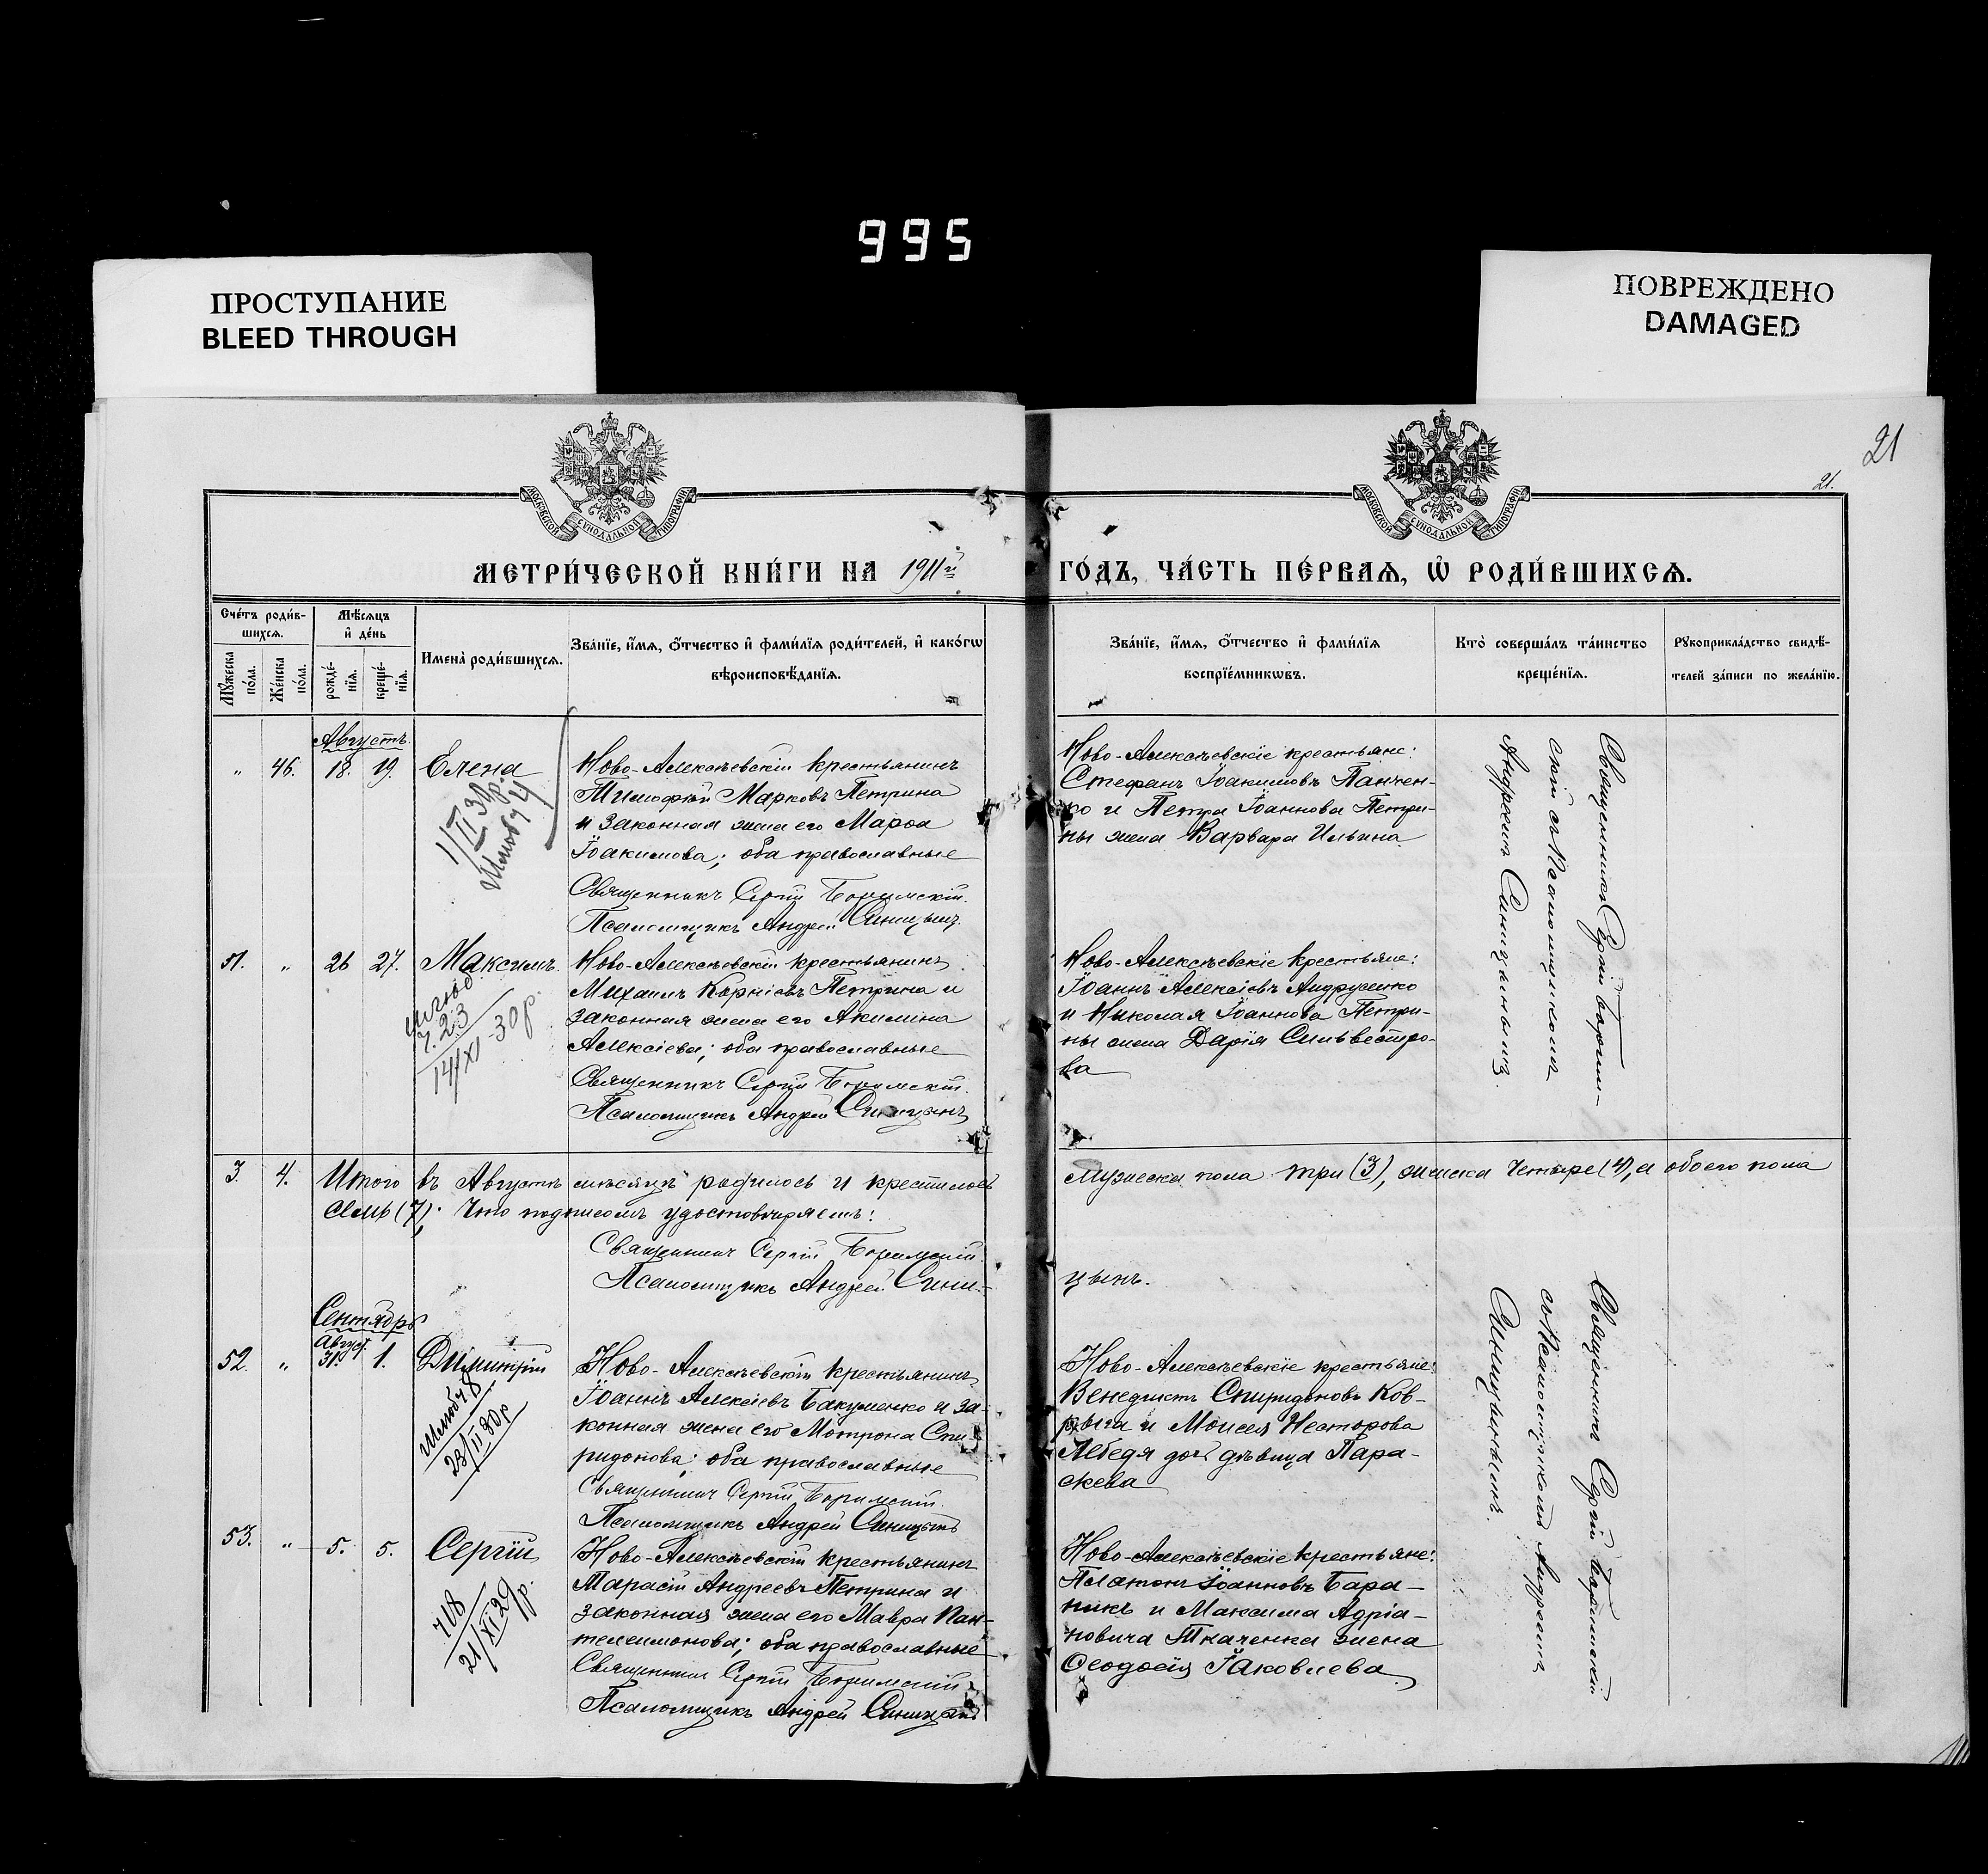 995
ПРОСТУПАНИЕ
BLEED THROUGH
ПОВРЕЖДЕНО
DAMAGED
21
21.
МОСКОВСКОЙ СУНОДАЛЬНОЙ ТИПОГРАФІИ
МОСКОВСКОЙ СУНОДАЛЬНОЙ ТИПОГРАФІИ
МЕТРИ́ЧЕСКОЙ КНИ́ГИ НА 1911й
ГО́ДЪ, ЧА́СТЬ ПЕ́РВАѦ, Ѡ҆ РОДИ́ВШИХСѦ.
Сче́тъ роди́в-
шихсѧ.
Мѣ́сѧцъ
и҆ де́нь
Мꙋ́жеска
по́ла.
Же́нска
по́ла.
рожде́-
нїѧ.
креще́-
нїѧ.
Имена̀ роди́вшихсѧ.
Зва́нїе, и҆́мѧ, ѻ҆́тчество и҆ фами́лїѧ роди́телей, и҆ како́гѡ
вѣроисповѣ́данїѧ.
Зва́нїе, и҆́мѧ, ѻ҆́тчество и҆ фами́лїѧ
воспрїе́мникѡвъ.
Кто̀ соверша́лъ та́инство
креще́нїѧ.
Рꙋкоприкла́дство свидѣ́-
телей за́писи по жела́нїю.
Августъ.
" 46. 18. 19. Елена
Ново-Алексѣевскій крестьянинъ
Тимофей Марковъ Петрина
и законная жена его Марѳа
Іоакимова; оба православные
Священникъ Сергій Боримскій.
Псаломщикъ Андрей Синицынъ.
Ново-Алексѣевскіе крестьяне:
Стефанъ Іоакимовъ Панчен-
ко и Петра Іоаннова Петри-
ны жена Варвара Ильина
Священникъ Сергій Борим-
скій съ Псаломщикомъ
Андреемъ Синицынымъ.
51. " 26 27. Максимъ.
Ново-Алексѣевскій крестьянинъ
Михаилъ Корніевъ Петрина и
законная жена его Акилина
Алексіева; оба православные
Священникъ Сергій Боримскій.
Псаломщикъ Андрей Синицынъ
14/XI-30р.
Ново-Алексѣевскіе крестьяне:
Іоаннъ Алексіевъ Андрущенко
и Николая Іоаннова Петри-
ны жена Дарія Сильвестро-
ва
3. 4. Итого въ Августѣ мѣсяцѣ родилось и крестилось
мужеска пола три (3), женска четыре (4), а обоего пола
семь (7); что подписомъ удостовѣряемъ:
Священникъ Сергій Боримскій.
Псаломщикъ Андрей Сини-
цынъ.
Сентябрь
Август.
52. " 31. 1. Димитрій
23/II 30р
Ново-Алексѣевскій крестьянинъ
Іоаннъ Алексіевъ Бакуменко и за-
конная жена его Мотрона Спи-
ридонова; оба православные
Священникъ Сергій Боримскій.
Псаломщикъ Андрей Синицынъ
Ново-Алексѣевскіе крестьяне:
Венедиктъ Спиридоновъ Ков-
рыга и Моисея Несторова
Лебедя дочь дѣвица Пара-
скева
Священникъ Сергій Боримскій
съ Псаломщикомъ Андреемъ
Синицынымъ.
53. " 5. 5. Сергій
718
21/XI 29р.
Ново-Алексѣевскій крестьянинъ
Тарасій Андреевъ Петрина и
законная жена его Мавра Пан-
телеимонова; оба православные
Священникъ Сергій Боримскій
Псаломщикъ Андрей Синицынъ
Ново-Алексѣевскіе крестьяне:
Платонъ Іоанновъ Бара-
никъ и Максима Адріа-
новича Ткаченка жена
Ѳеодосія Іаковлева